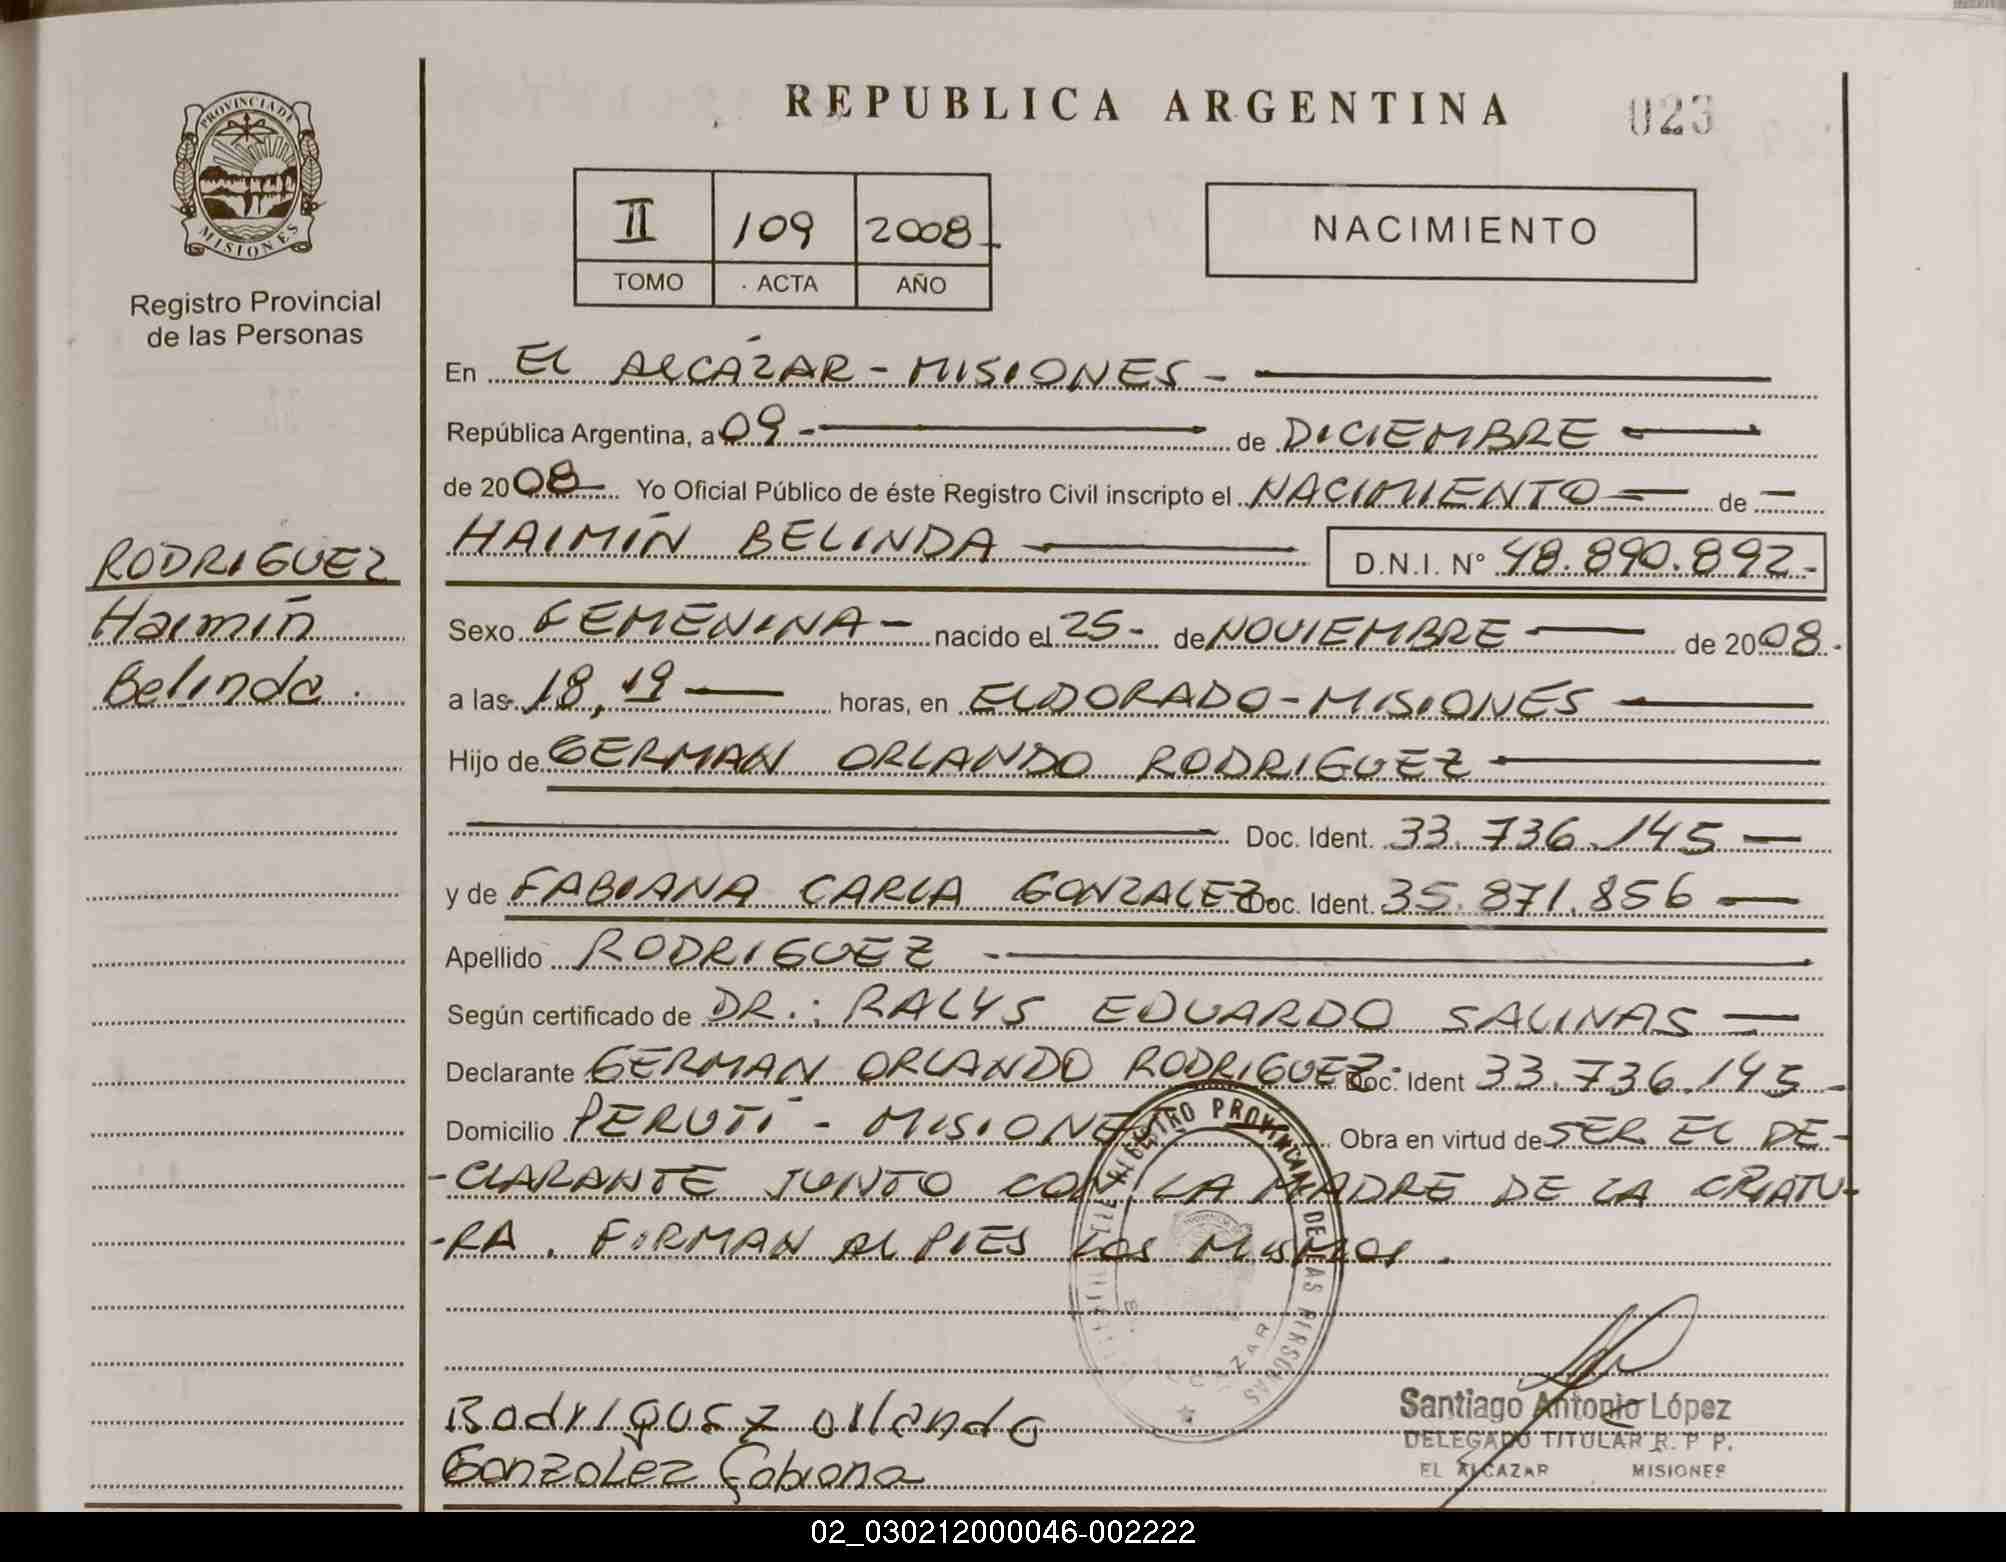 PROVINCIA DE
MISIONES
Registro Provincial
de las Personas
RODRIGUEZ
Haimín
Belinda.
REPUBLICA ARGENTINA
023
II 109 2008
TOMO ACTA AÑO
NACIMIENTO
En EL ALCÁZAR - MISIONES -
República Argentina, a 09 - de DICIEMBRE
de 2008 Yo Oficial Público de éste Registro Civil inscripto el NACIMIENTO de
HAIMÍN BELINDA D.N.I. N° 48.890.892.-
Sexo FEMENINA - nacido el 25- de NOVIEMBRE de 2008.-
a las 18,19 horas, en ELDORADO - MISIONES
Hijo de GERMAN ORLANDO RODRIGUEZ
Doc. Ident. 33.736.145
y de FABIANA CARLA GONZALEZ Doc. Ident. 35.871.856
Apellido RODRIGUEZ -
Según certificado de DR.: RALYS EDUARDO SALINAS
Declarante GERMAN ORLANDO RODRIGUEZ.- Doc. Ident 33.736.145 -
Domicilio PERUTÍ - MISIONES Obra en virtud de SER EL DE-
-CLARANTE JUNTO CON LA MADRE DE LA CRIATU-
-RA. FIRMAN AL PIES LOS MISMOS.
REGISTRO PROVINCIAL DE LAS PERSONAS
Rodriguez orlando
Gonzalez Fabiana
Santiago Antonio López
DELEGADO TITULAR R. P. P.
EL ALCAZAR MISIONES
02_030212000046-002222